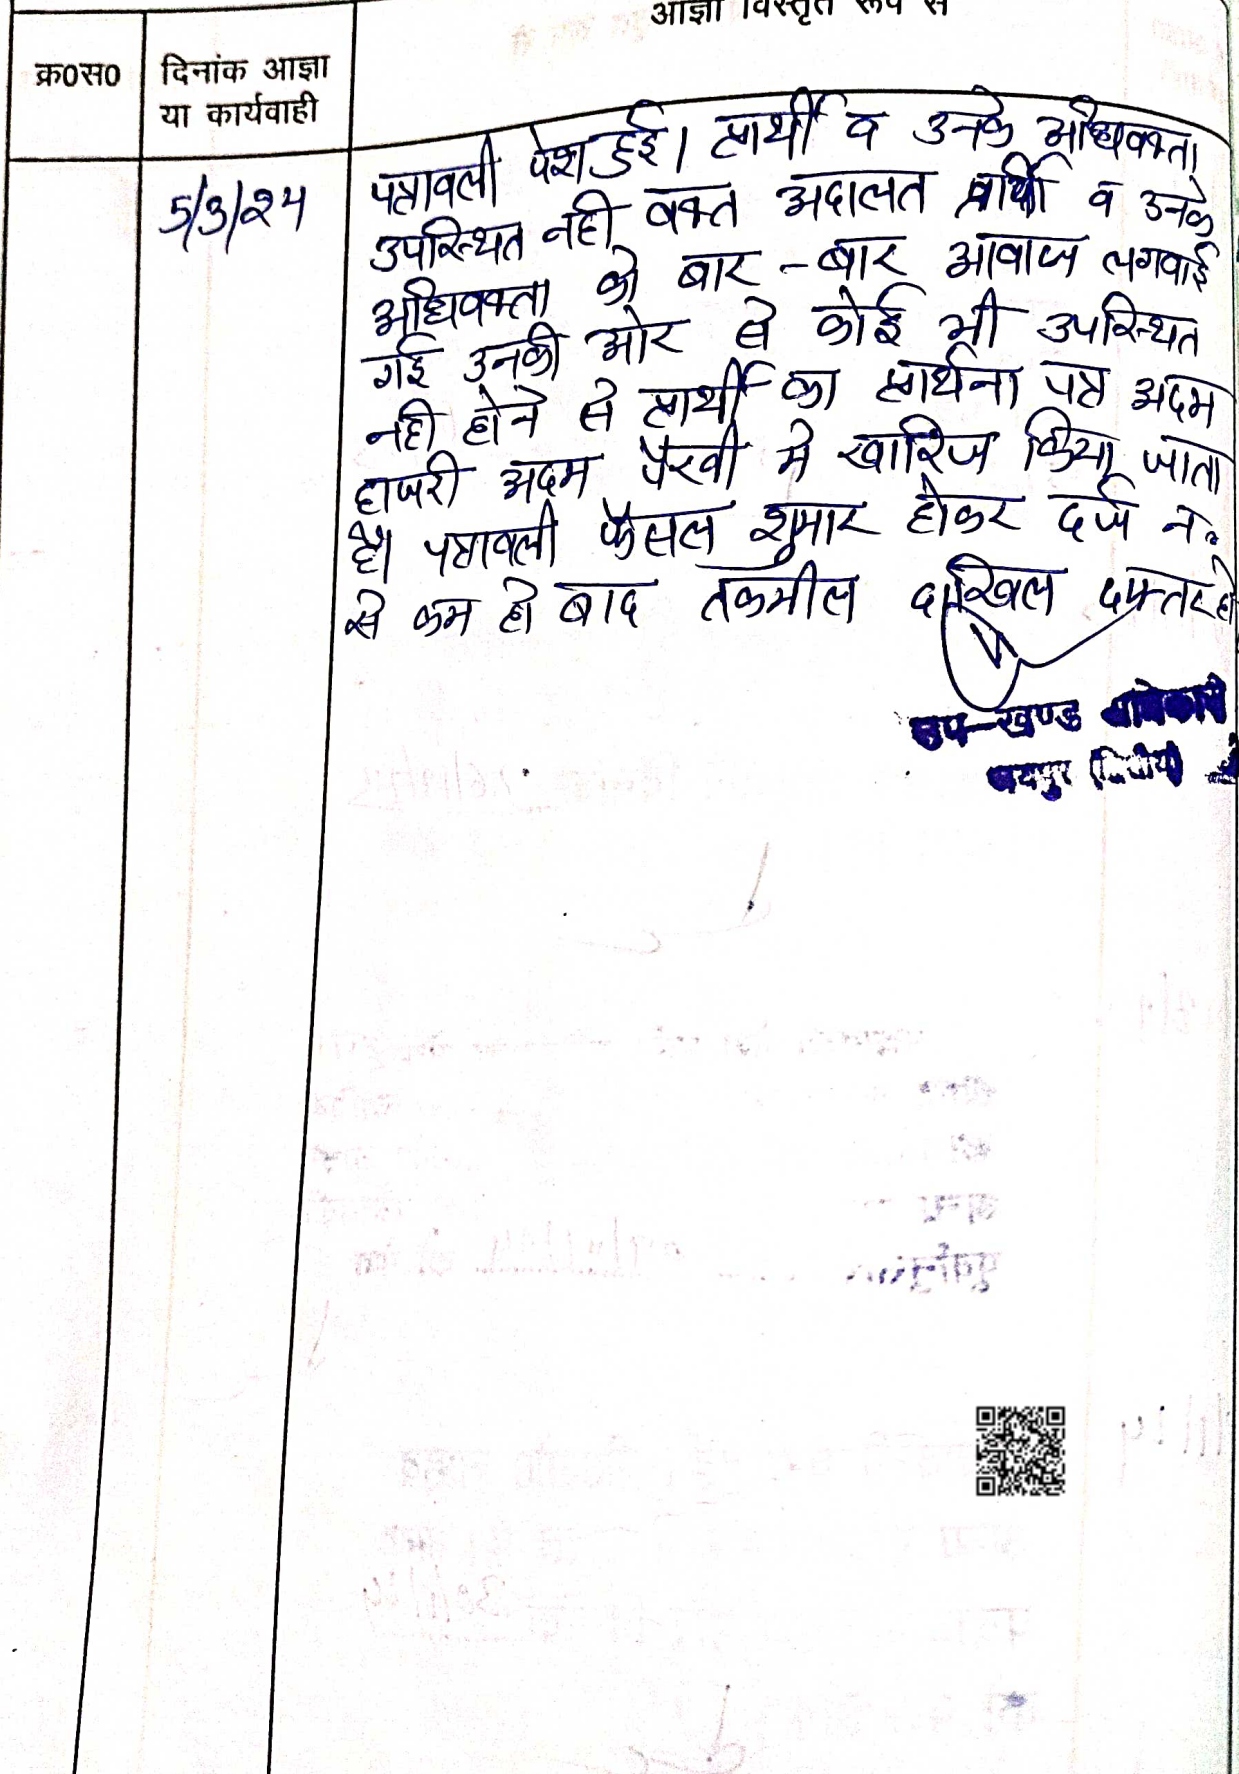 आज्ञा विस्तृत रूप से
क्र0स0
दिनांक आज्ञा
या कार्यवाही
5/3/24
पत्रावली पेश हुई। प्रार्थी व उनके अधिवक्ता
उपस्थित नही वक्त अदालत प्रार्थी व उनके
अधिवक्ता को बार-बार आवाज लगवाई
गई उनकी ओर से कोई भी उपस्थित
नही होने से प्रार्थी का प्रार्थना पत्र अदम
हाजरी अदम पैरवी मे खारिज किया जाता
है। पत्रावली फैसल शुमार होकर दर्ज न.
से कम हो बाद तकमील दाखिल दफ्तर हो
उप-खण्ड अधिकारी
जयपुर (द्वितीय)